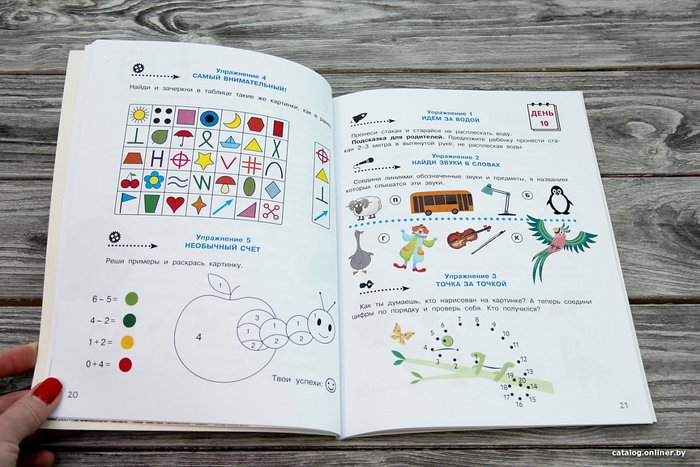 Упражнение 4
САМЫЙ ВНИМАТЕЛЬНЫЙ!
Найди и зачеркни в таблице такие же картинки, как в
Упражнение 5
НЕОБЫЧНЫЙ СЧЁТ
Реши примеры и раскрась картинку.
6 – 5 =
4 – 2 =
1 + 2 =
0 + 4 =
1
1
4
3
2
1
2
1
2
1
Твои успехи:
20
Упражнение 1
ИДЁМ ЗА ВОДОЙ
ДЕНЬ
10
Пронеси стакан и старайся не расплескать воду.
Подсказка для родителей. Предложите ребёнку пронести ста-
кан 2–3 метра в вытянутой руке, не расплескав воды.
Упражнение 2
НАЙДИ ЗВУКИ В СЛОВАХ
Соедини линиями обозначенные звуки и предметы, в названиях
которых слышатся эти звуки.
П
Б
Г
К
Упражнение 3
ТОЧКА ЗА ТОЧКОЙ
Как ты думаешь, кто нарисован на картинке? А теперь соедини
цифры по порядку и проверь себя. Кто получился?
4
5
6
7
8
9
10
11
12
13
14
15
16
17
18
19
20
21
catalog.onliner.by